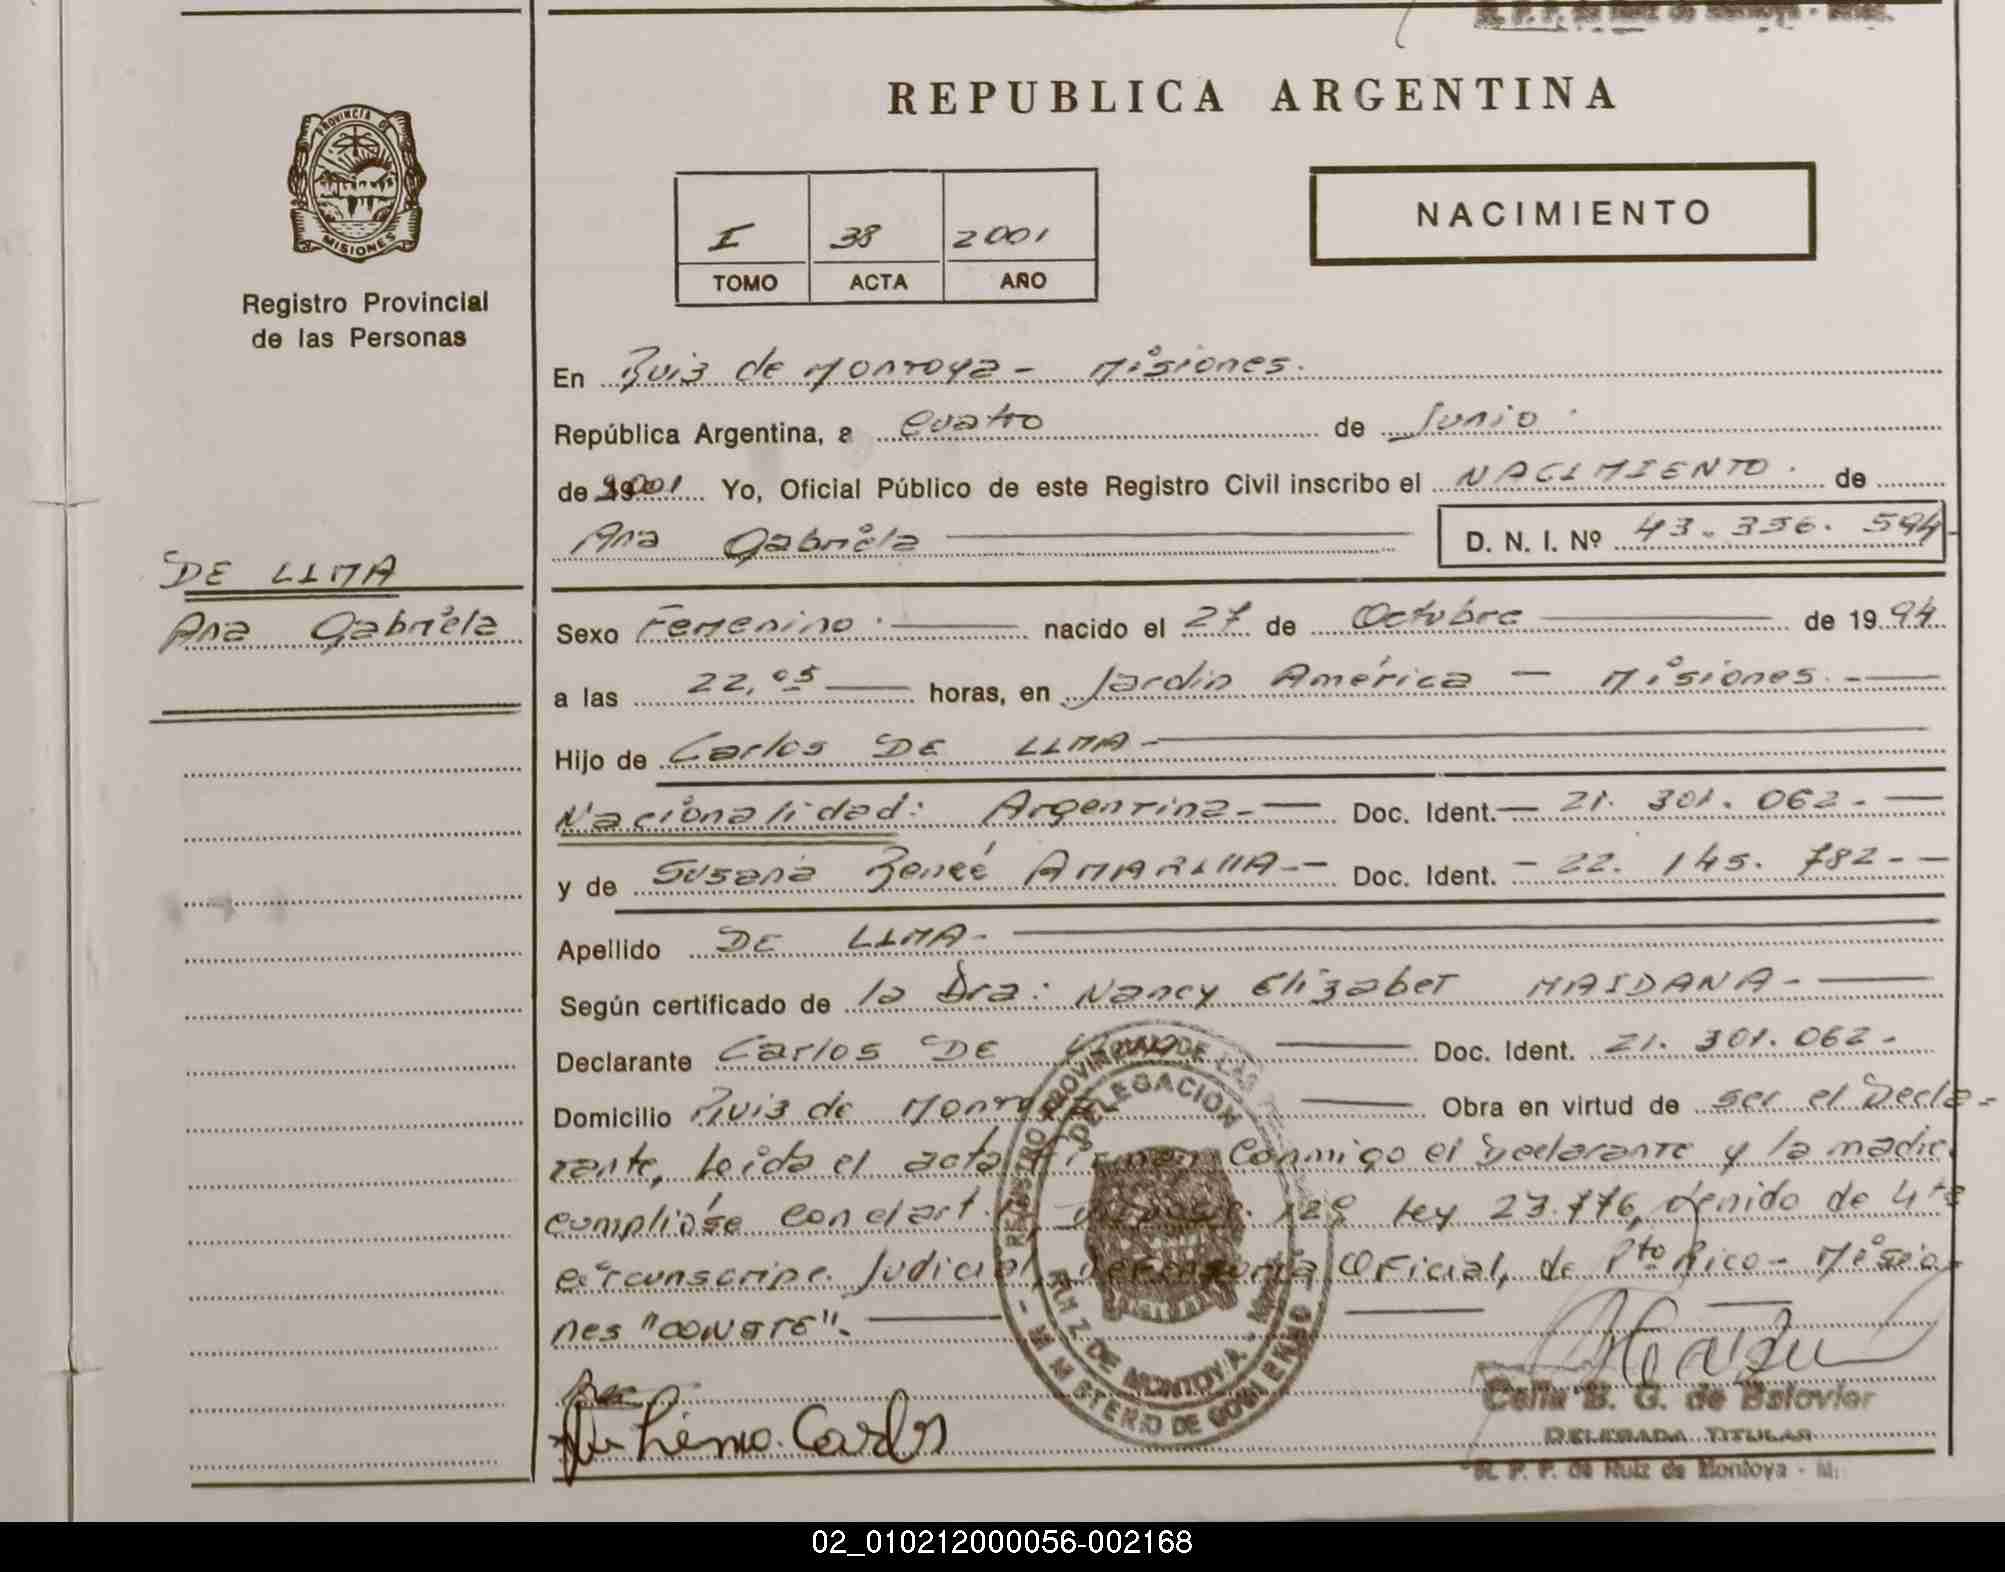 R. P. P. de Ruiz de Montoya - Mnes.
REPUBLICA ARGENTINA
PROVINCIA DE
MISIONES
Registro Provincial
de las Personas
NACIMIENTO
I 38 2001
TOMO ACTA AÑO
En Ruiz de Montoya - Misiones.
República Argentina, a Cuatro de Junio.
de 2001 Yo, Oficial Público de este Registro Civil inscribo el NACIMIENTO. de
Ana Gabriela D. N. I. Nº 43.356.594-
DE LIMA
Ana Gabriela
Sexo Femenino. nacido el 27 de Octubre de 1994.
a las 22,05 horas, en Jardin América - Misiones.-
Hijo de Carlos DE LIMA-
Nacionalidad: Argentina.- Doc. Ident.- 21.301.062.-
y de Susana Reneé AMARILLA-- Doc. Ident. - 22.145.782.-
Apellido DE LIMA-
Según certificado de la Dra: Nancy Elizabet MAIDANA-
Declarante Carlos DE Doc. Ident. 21.301.062-
Domicilio Ruiz de Montoya Obra en virtud de ser el Decla-
rante, leida el acta Firman Conmigo el Declarante y la madre.
cumplióse con el art. 12º ley 23.776, de 4ta
circunscripc. Judicial, Defensoría Oficial, de Pto Rico- Misio-
nes "CONSTE".-
REGISTRO PROVINCIAL DE LAS
DELEGACION
RUIZ DE MONTOYA - Mnes
- MINISTERIO DE GOBIERNO -
De Lima Carlos
Celia B. G. de Balovier
DELEGADA TITULAR
R. P. P. de Ruiz de Montoya - M
02_010212000056-002168